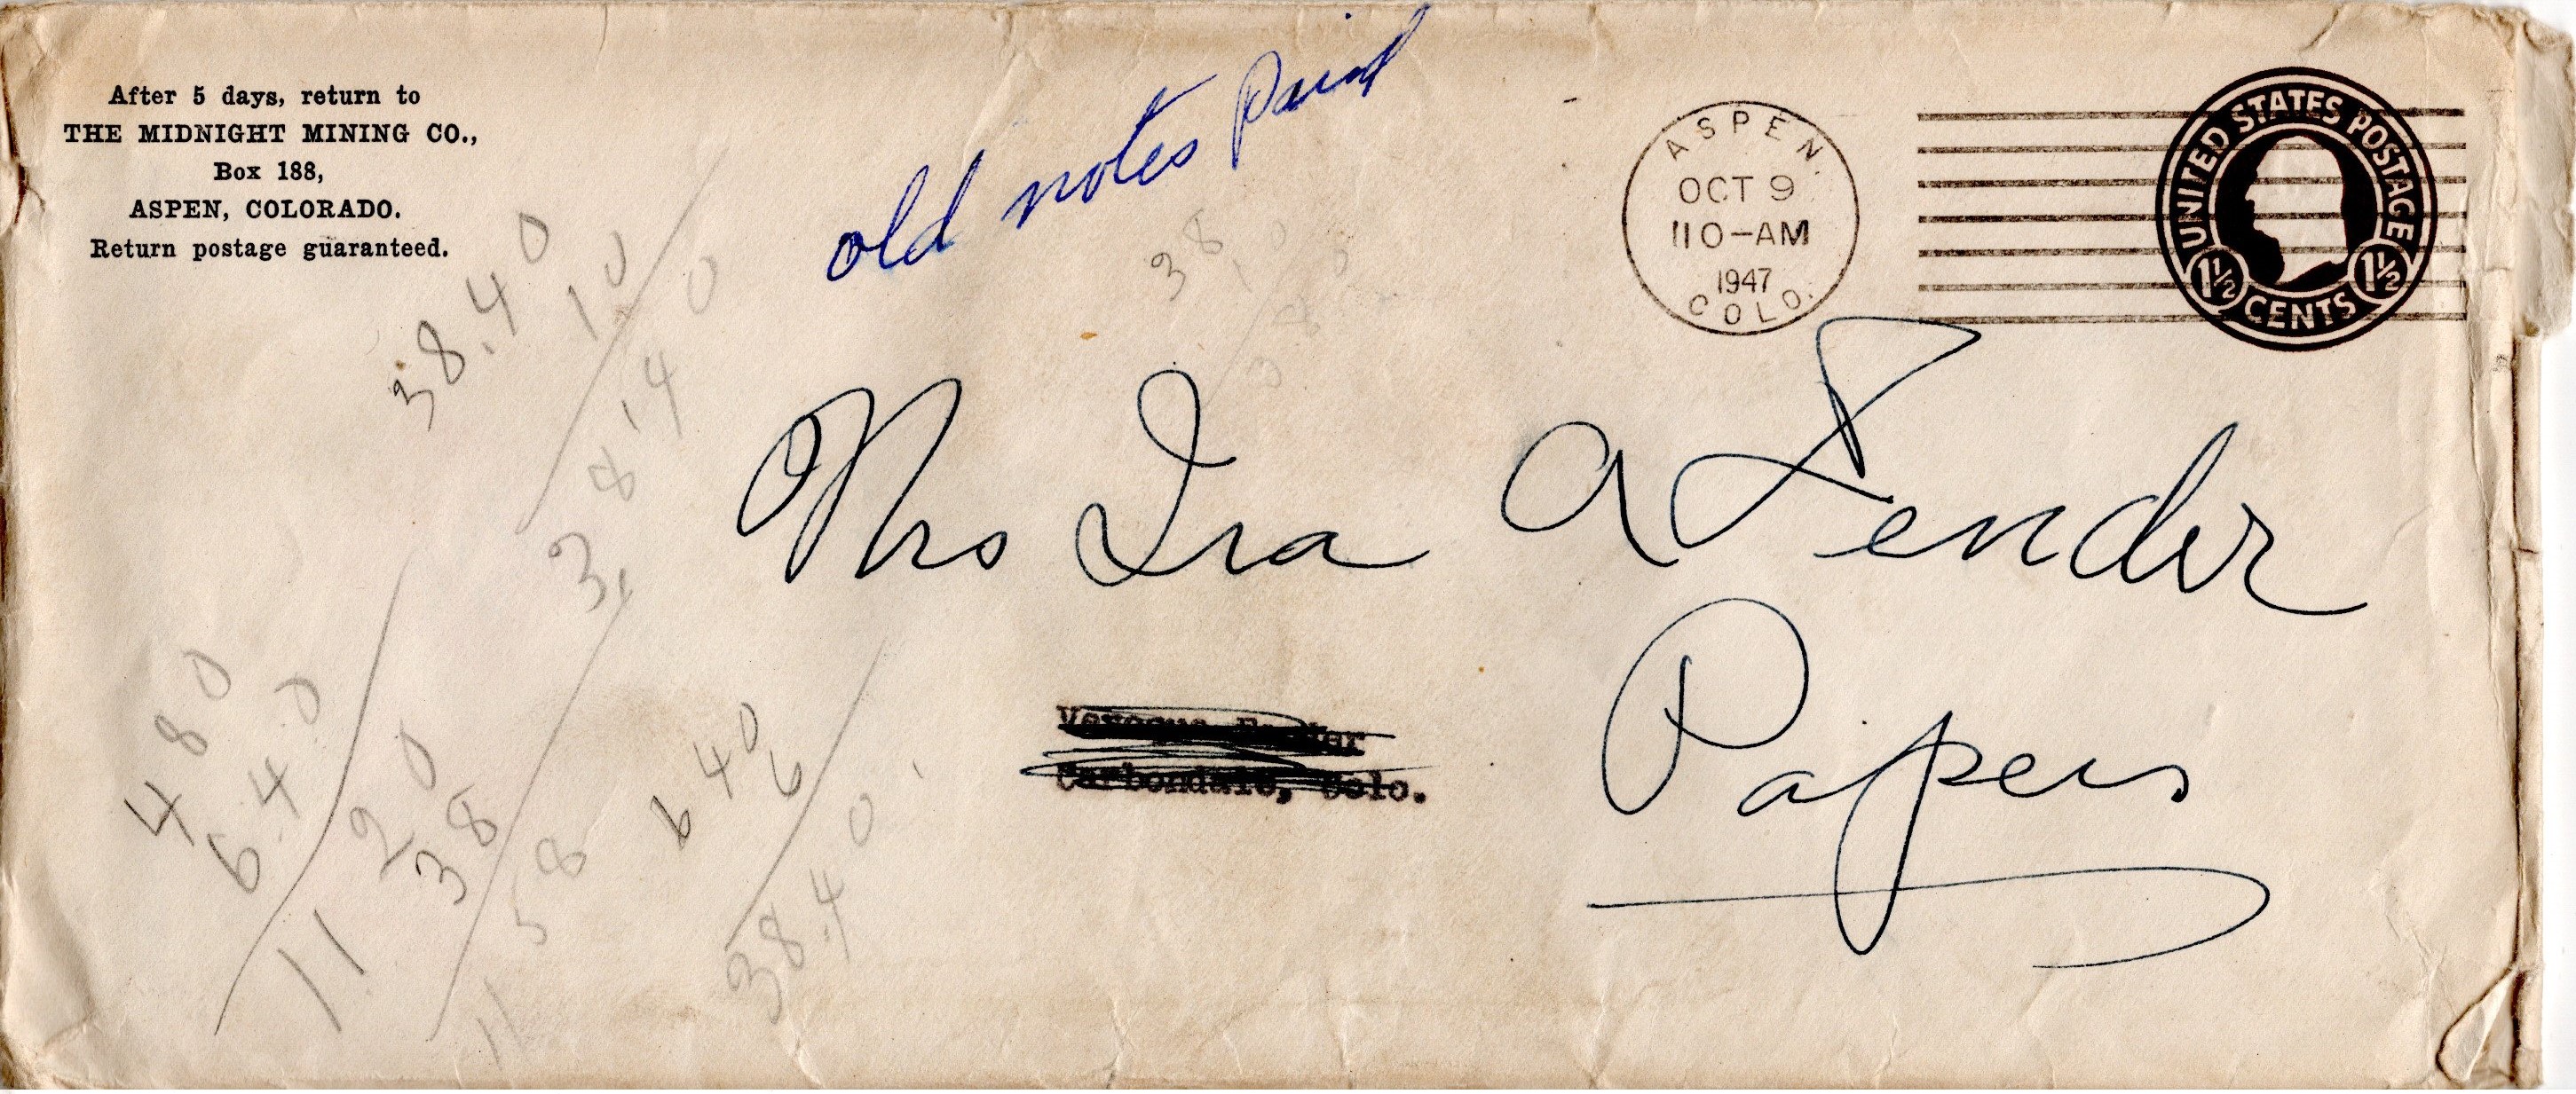 After 5 days, return to
THE MIDNIGHT MINING CO.,
Box 188,
ASPEN, COLORADO.
Return postage guaranteed.
old notes Paid
ASPEN
OCT 9
11 0-AM
1947
COLO.
UNITED STATES POSTAGE
1½ CENTS 1½
38.40
10
3.840
38
Mrs Ira A Fender
Papers
Carbondale, Colo.
480
6.40
11 20
38
11 58
6 40
6
38.40